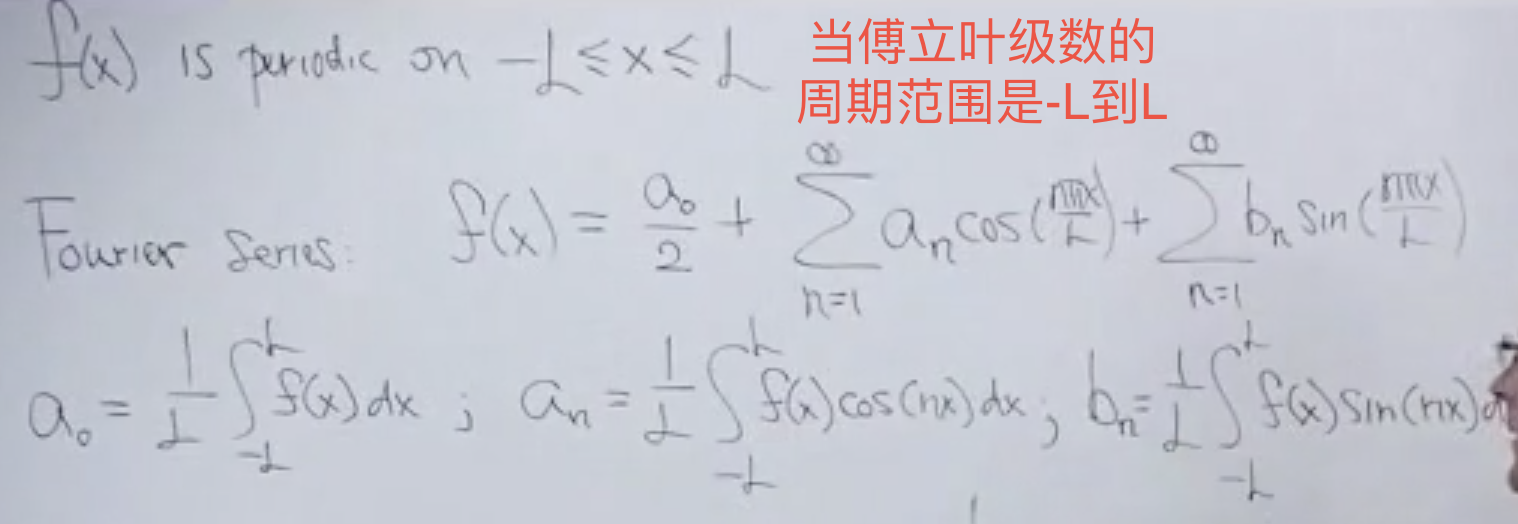 f(x) is periodic on -L ≤ x ≤ L
当傅立叶级数的
周期范围是-L到L
Fourier Series: f(x) = a₀/2 + ∑_{n=1}^{∞} aₙ cos(nπx/L) + ∑_{n=1}^{∞} bₙ sin(nπx/L)
a₀ = 1/L ∫_{-L}^{L} f(x) dx ; aₙ = 1/L ∫_{-L}^{L} f(x) cos(nx) dx ; bₙ = 1/L ∫_{-L}^{L} f(x) sin(nx)